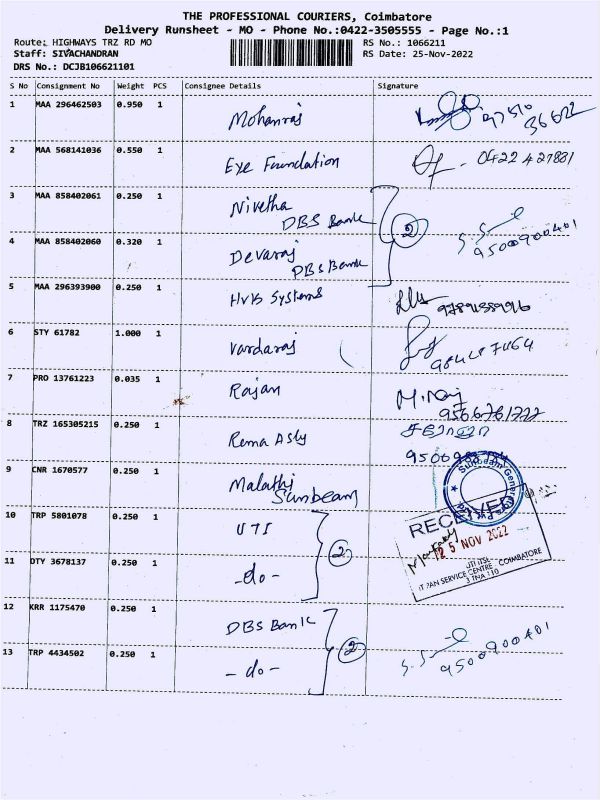 THE PROFESSIONAL COURIERS, Coimbatore
Delivery Runsheet - MO - Phone No.:0422-3505555 - Page No.:1
Route: HIGHWAYS TRZ RD MO
RS No.: 1066211
Staff: SIVACHANDRAN
RS Date: 25-Nov-2022
DRS No.: DCJB106621101
S No Consignment No Weight PCS Consignee Details Signature
1 MAA 296462503 0.950 1 Mohanraj
2 MAA 568141036 0.550 1 Eye Foundation 0422 427881
3 MAA 858402061 0.250 1 Nivetha
DBS Bank
2
S.S
9500900401
4 MAA 858402060 0.320 1 Devaraj
DBS Bank
5 MAA 296393900 0.250 1 HVB Systems
6 STY 61782 1.000 1 Vardaraj
7 PRO 13761223 0.035 1 Rajan M.Raj
9566761722
8 TRZ 165305215 0.250 1 Rema Asly
9 CNR 1670577 0.250 1 Malathi
Sunbeam
10 TRP 5801078 0.250 1 UTI
2
RECEIVED
25 NOV 2022
UTI ITSL
IT PAN SERVICE CENTRE COIMBATORE
11 DTY 3678137 0.250 1 -do-
12 KRR 1175470 0.250 1 DBS Bank
2
S.S
9500900401
13 TRP 4434502 0.250 1 -do-